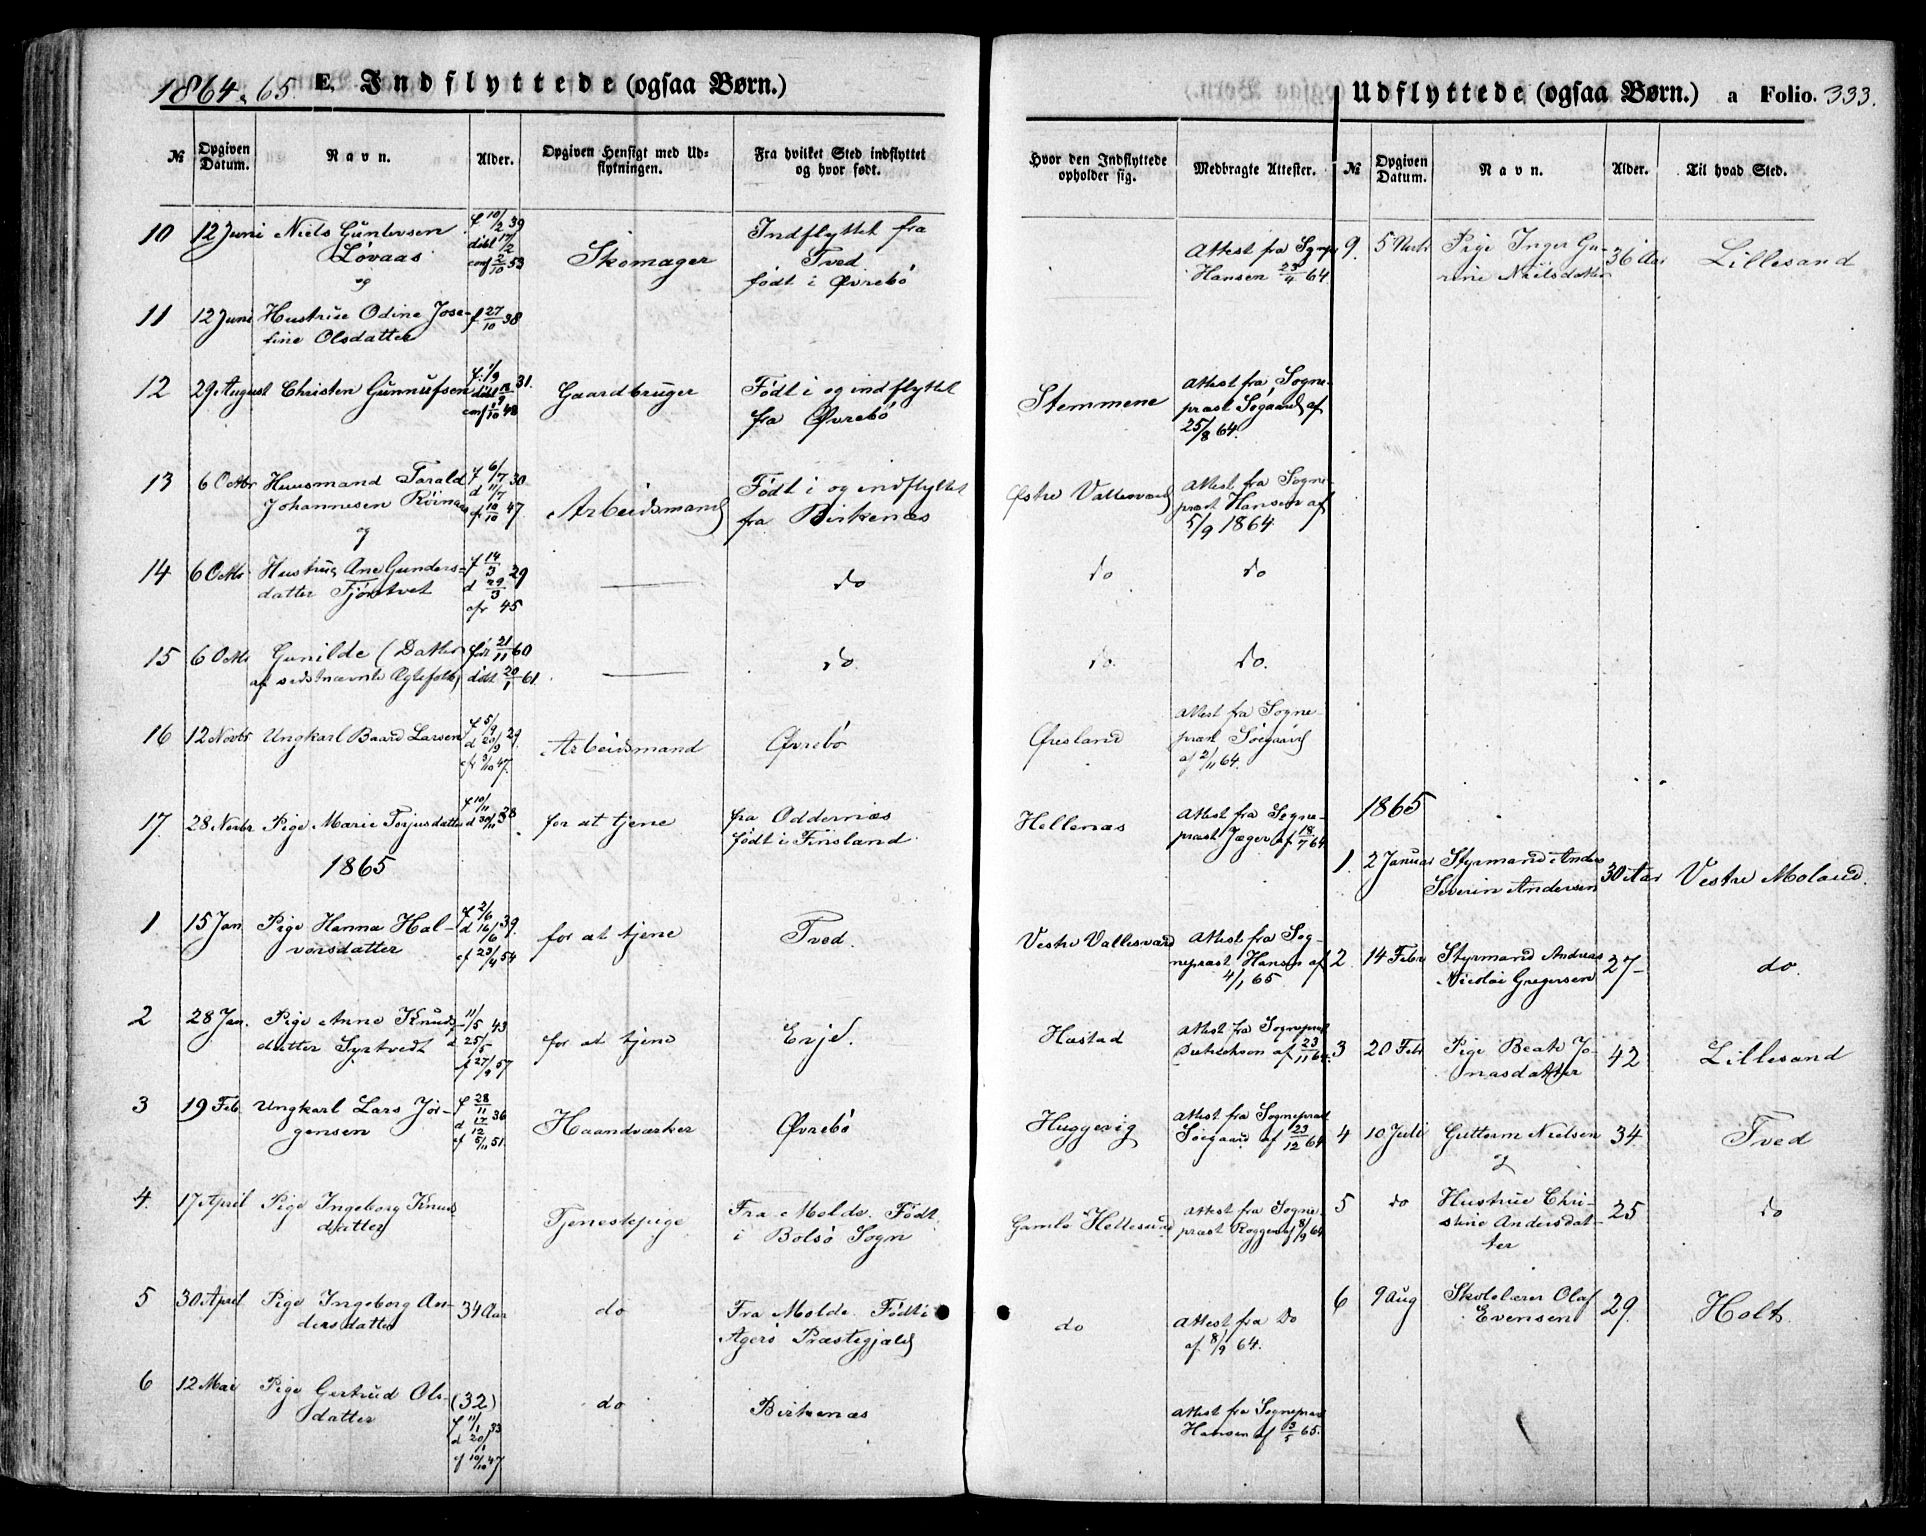 1864, 65. E. Indflyttede (ogsaa Børn.)
№
Opgiven Datum.
Navn.
Alder.
Opgiven Hensigt med Udflytningen.
Fra hvilket Sted indflyttet og hvor født.
10 12 Juni Niels Guntersen f 10/2 39 Skomager Indflyttet fra
Løvaas døbt 17/2 Tved
og conf 2/10 53 født i Øvrebø
11 12 Juni Hustrue Odine Jose- f 27/10 38
fine Olsdatter
12 29 August Christen Gunnufsen f. 1/9 31. Gaardbruger Født i og indflyttet
conf 1/10 48 fra Øvrebø
13 6 Octbr Huusmand Tarald f 6/7 30 Arbeidsmand Født i og indflyttet
Johannesen d 11/7 fra Birkenæs
og cf 10/10 47
14 6 Octbr Hustrug Ane Gunders- f 14/3 29 — do
datter Tjøntvet d 29/3
cfr 45
15 6 Octbr Gunilde (Datter før 21/11 60 — do.
af sidstnævnte Ægtefolk) døbt 20/1 61.
16 12 Novbr Ungkarl Baard Larsen f 5/9 29. Arbeidsmand Øvrebø
d 20/9
cfr 3/10 47.
17 28 Novbr Pige Marie Torjusdatter f 10/11 38 for at tjene fra Oddernæs
d 30/11 født i Finsland
1865
1. 15 Jan Pige Hanna Hal- f 2/6 39. for at tjene Tved.
vorsdatter d 16/6
cf 23/4 54
2 28 Jan. Pige Anne Knuds- 11/5 43 for at tjene Evje.
datter Syrtvedt d 25/5
cf 27/9 57
3 19 Feb. Ungkarl Lars Jør- f 28/11 36 Haandværker Øvrebø
gensen d 17/12
cf 5/11 51.
4. 17 April Pige Ingeborg Knuds- Tjenestepige Fra Molde. Født
datter i Bolsø Sogn
5 30 April Pige Ingeborg An- 34 Aar do Fra Molde. Født i
dersdatter Agerø Præstegjæld
6 12 Mai Pige Gertrud Ols- (32) do Birkenæs
datter f 11/1 33
d 20/1
cf 10/10 47
Udflyttede (ogsaa Børn.) a Folio. 333.
Hvor den Indflyttede opholder sig.
Medbragte Attester.
№
Opgiven Datum.
Navn.
Alder.
Til hvad Sted.
Attest fra Sognepr 9. 5 Novbr Pige Inger Gu- 36 Aar Lillesand
Hansen 23/4 64 rine Nielsdatter
Stemmene Attest fra Sogne-
præst Søgaard af
25/8 64.
Østre Vallesværd Attest fra Sogne-
præst Hansen af
5/9 1864
do do
do. do.
Øresland Attest fra Sogne-
præst Søegaard
af 2/11 64.
Hellenæs Attest fra Sogne-
præst Jæger af 18/7 64
1865
1. 2 Januar Styrmand Anders 30 Aar Vestre Moland.
Severin Andersen
Vestre Vallesværd Attest fra Sog- 2. 14 Febr Styrmand Andreas 27- do.
nepræst Hansen af Nicolai Gregersen
4/1 65
Hæstad Attest fra Sognepræst 3 20 Febr Pige Beate Jo- 42 Lillesand
af 23/11 64 nasdatter
Huggevig Attest fra Sognepræst 4 10 Juli Guttorm Nielsen 34. Tved
Søegaard af 23/12 64 og
Gamle Hellesund Attest fra Sogne- 5 do Hustrue Chri- 25 do
præst Roggen af 8/9 64 stine Andersdat-
ter
do Attest fra Do 6 9 Aug Skolelærer Olaf 29. Holt.
af 8/9 64. Evensen
Attest fra Sognepræst
Hansen af 13/5 65.